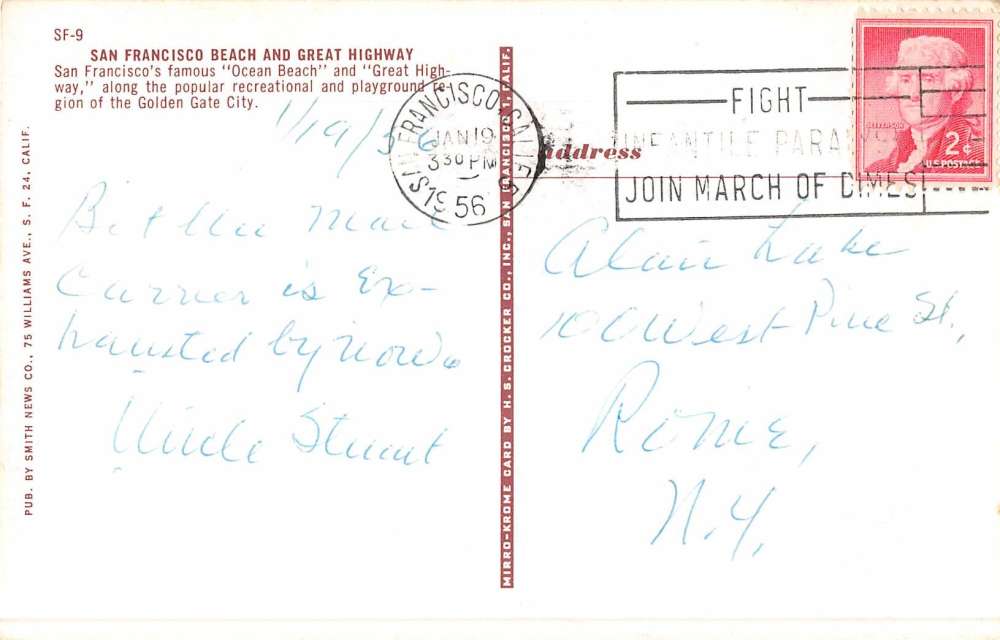 SF-9
SAN FRANCISCO BEACH AND GREAT HIGHWAY
San Francisco's famous "Ocean Beach" and "Great High-
way," along the popular recreational and playground re-
gion of the Golden Gate City.
1/19/56
Bet the Mail
Carrier is Ex-
hausted by now.
Uncle Stuart
PUB. BY SMITH NEWS CO., 75 WILLIAMS AVE., S. F. 24, CALIF.
MIRRO-KROME CARD BY H. S. CROCKER CO., INC., SAN FRANCISCO 1, CALIF.
SAN FRANCISCO, CALIF.
JAN 19
3 30 PM
1956
FIGHT
INFANTILE PARALYSIS
JOIN MARCH OF DIMES!
JEFFERSON
2¢
U.S. POSTAGE
Address
Alan Lake
100 West Pine St.,
Rome,
N.Y.